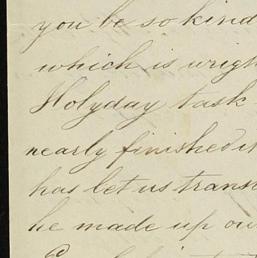 you be so kind
which is wrigh
Holyday task
nearly finished it
has let us trans
he made up ou